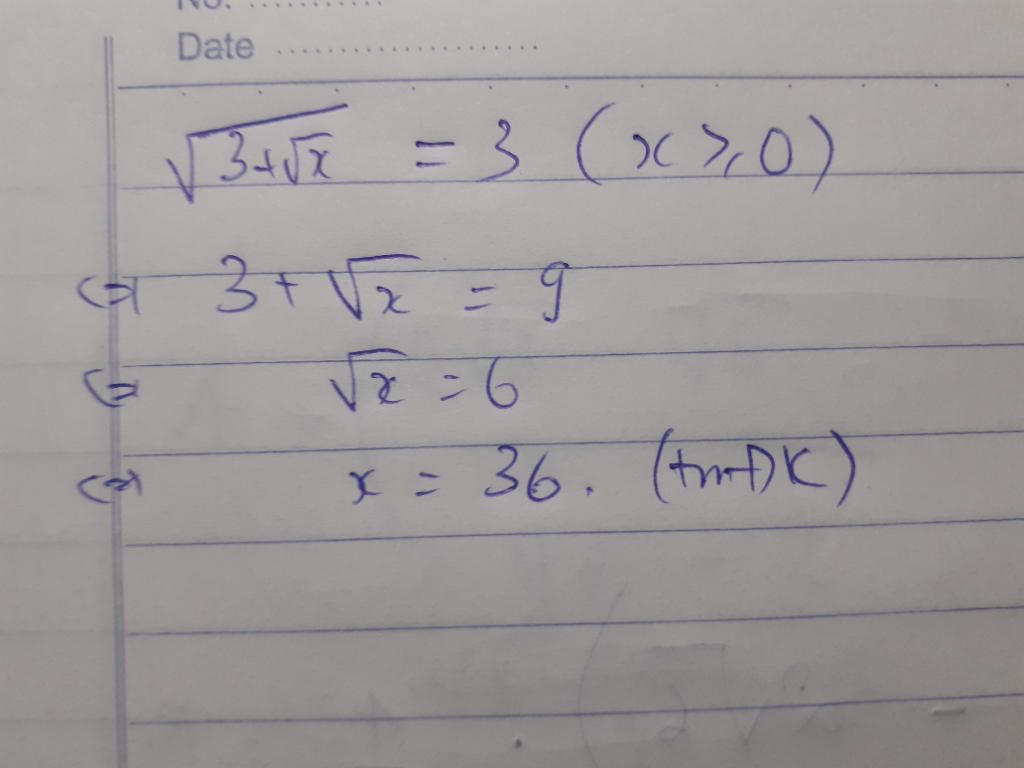 No. ............
Date ....................
√(3+√x) = 3 (x ≥ 0)
⇔ 3 + √x = 9
⇔ √x = 6
⇔ x = 36. (tmĐK)